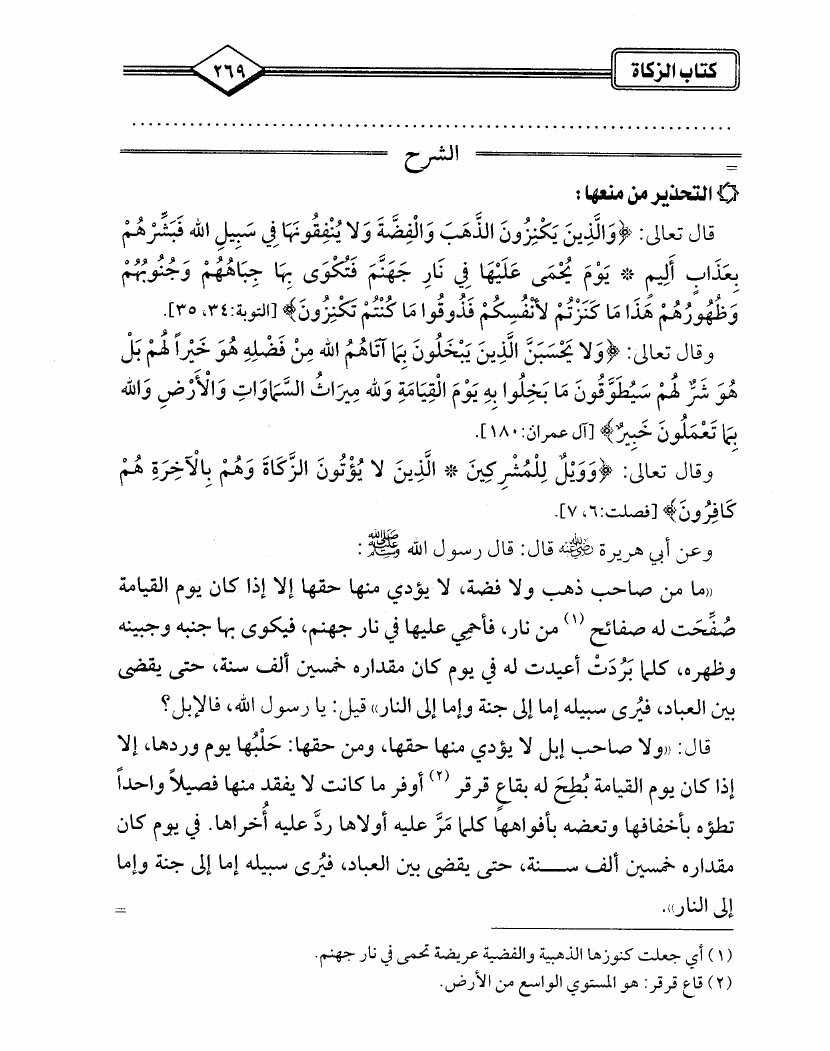 كتاب الزكاة ٢٦٩
الشرح
=
التحذير من منعها:
قال تعالى: ﴿وَالَّذِينَ يَكْنِزُونَ الذَّهَبَ وَالْفِضَّةَ وَلا يُنْفِقُونَهَا فِي سَبِيلِ الله فَبَشِّرْهُمْ
بِعَذَابٍ أَلِيمٍ * يَوْمَ يُحْمَى عَلَيْهَا فِي نَارِ جَهَنَّمَ فَتُكْوَى بِهَا جِبَاهُهُمْ وَجُنُوبُهُمْ
وَظُهُورُهُمْ هَذَا مَا كَنَزْتُمْ لأَنْفُسِكُمْ فَذُوقُوا مَا كُنْتُمْ تَكْنِزُونَ﴾ [التوبة:٣٤، ٣٥].
وقال تعالى: ﴿وَلا يَحْسَبَنَّ الَّذِينَ يَبْخَلُونَ بِمَا آتَاهُمُ الله مِنْ فَضْلِهِ هُوَ خَيْراً لَهُمْ بَلْ
هُوَ شَرٌّ لَهُمْ سَيُطَوَّقُونَ مَا بَخِلُوا بِهِ يَوْمَ الْقِيَامَةِ وَلله مِيرَاثُ السَّمَاوَاتِ وَالْأَرْضِ وَالله
بِمَا تَعْمَلُونَ خَبِيرٌ﴾ [آل عمران:١٨٠].
وقال تعالى: ﴿وَوَيْلٌ لِلْمُشْرِكِينَ * الَّذِينَ لا يُؤْتُونَ الزَّكَاةَ وَهُمْ بِالْآخِرَةِ هُمْ
كَافِرُونَ﴾ [فصلت:٦، ٧].
وعن أبي هريرة رضي الله عنه قال: قال رسول الله ﷺ:
«ما من صاحب ذهب ولا فضة، لا يؤدي منها حقها إلا إذا كان يوم القيامة
صُفِّحَت له صفائح (١) من نار، فأحمي عليها في نار جهنم، فيكوى بها جنبه وجبينه
وظهره، كلما بَرُدَتْ أعيدت له في يوم كان مقداره خمسين ألف سنة، حتى يقضى
بين العباد، فيُرى سبيله إما إلى جنة وإما إلى النار» قيل: يا رسول الله، فالإبل؟
قال: «ولا صاحب إبل لا يؤدي منها حقها، ومن حقها: حَلْبُها يوم وردها، إلا
إذا كان يوم القيامة بُطِحَ له بقاعٍ قرقر (٢) أوفر ما كانت لا يفقد منها فصيلاً واحداً
تطؤه بأخفافها وتعضه بأفواهها كلما مَرَّ عليه أولاها ردَّ عليه أُخراها. في يوم كان
مقداره خمسين ألف سنة، حتى يقضى بين العباد، فيُرى سبيله إما إلى جنة وإما
إلى النار». =
(١) أي جعلت كنوزها الذهبية والفضية عريضة تحمى في نار جهنم.
(٢) قاع قرقر: هو المستوي الواسع من الأرض.